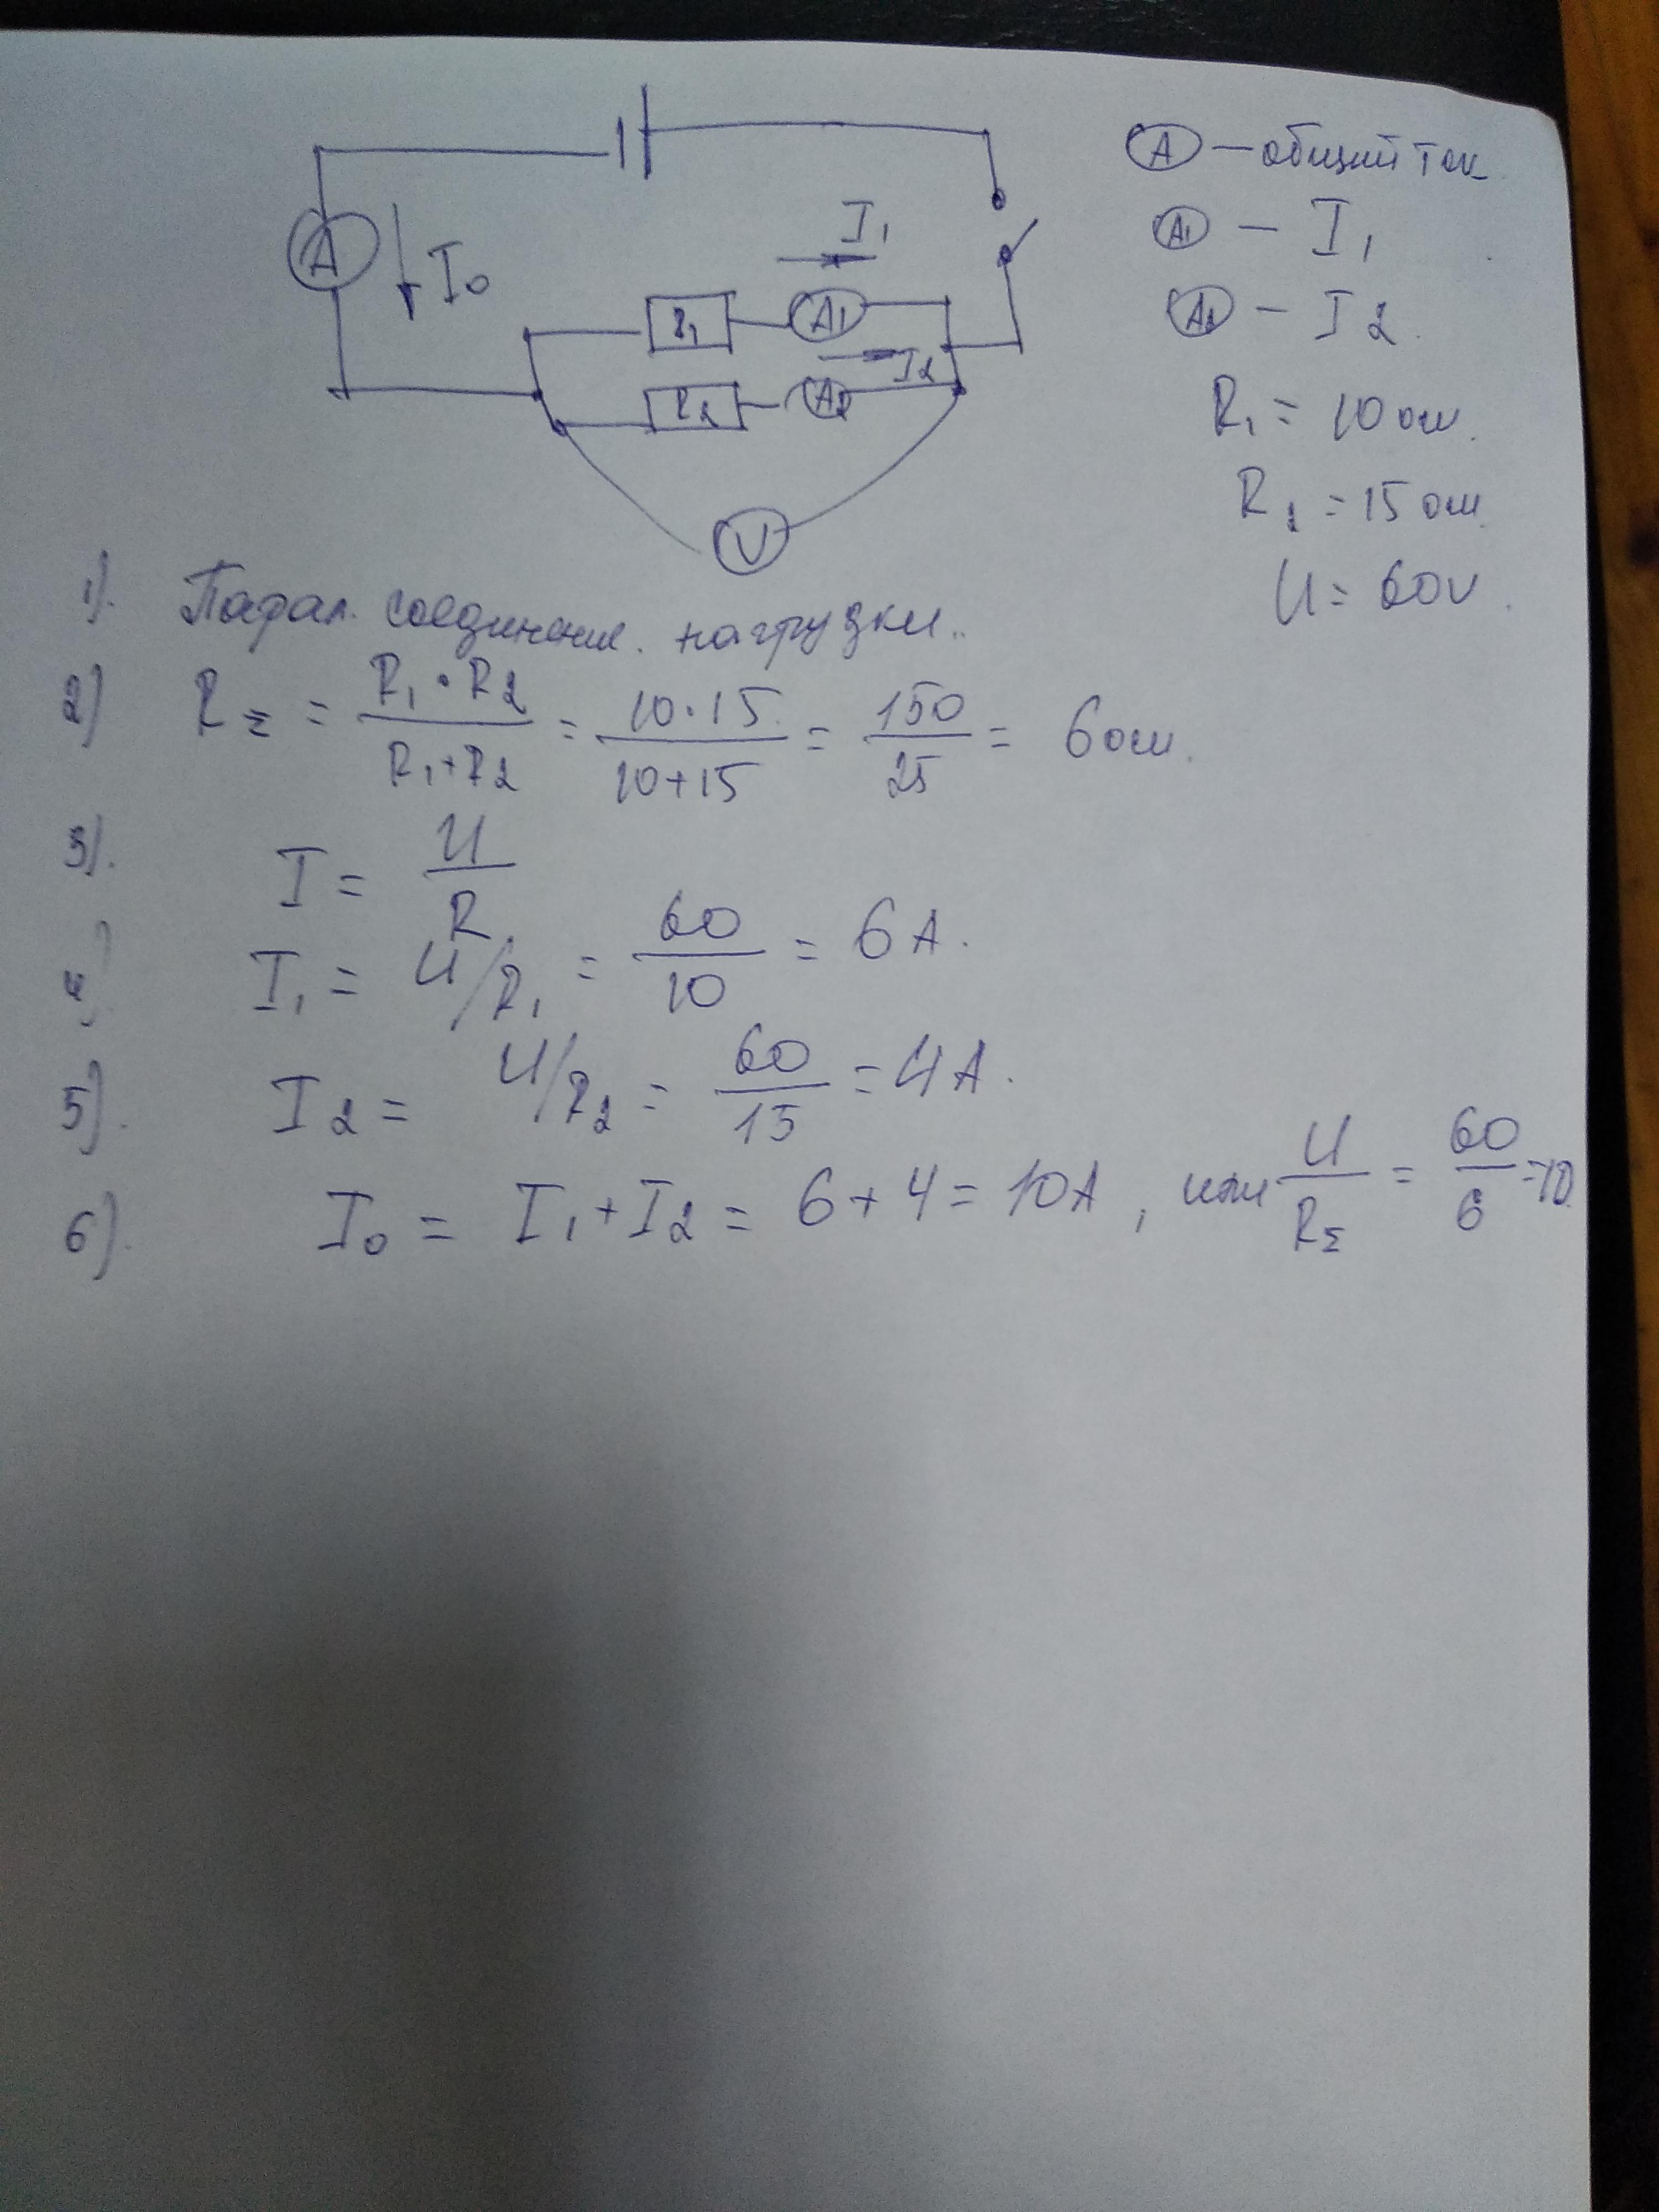 A — общий ток
A I0
I1
A1 — I1
R1 A1
A2 — I2
I2
R2 A2
R1 = 10 ом.
R2 = 15 ом.
V
U = 60V.
1). Парал. соединение. нагрузки..
2) RΣ = R1 · R2 / R1 + R2 = 10 · 15 / 10 + 15 = 150 / 25 = 6 ом.
3). I = U / R
4) I1 = U/R1 = 60 / 10 = 6 A.
5). I2 = U/R2 = 60 / 15 = 4 A.
6). I0 = I1 + I2 = 6 + 4 = 10A, или U / RΣ = 60 / 6 = 10.